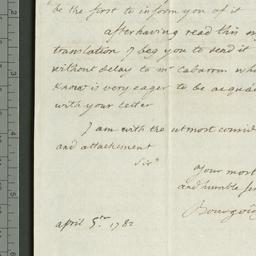 be the first to inform you of it
after having read this
translation I beg you to read it
without delay to mr Cabarrus who
know is very eager to be acqua
with your Letter
I am with the utmost consid
and attachement
Sir
your most
and humble ser
Bourgoi
april 5. 1782